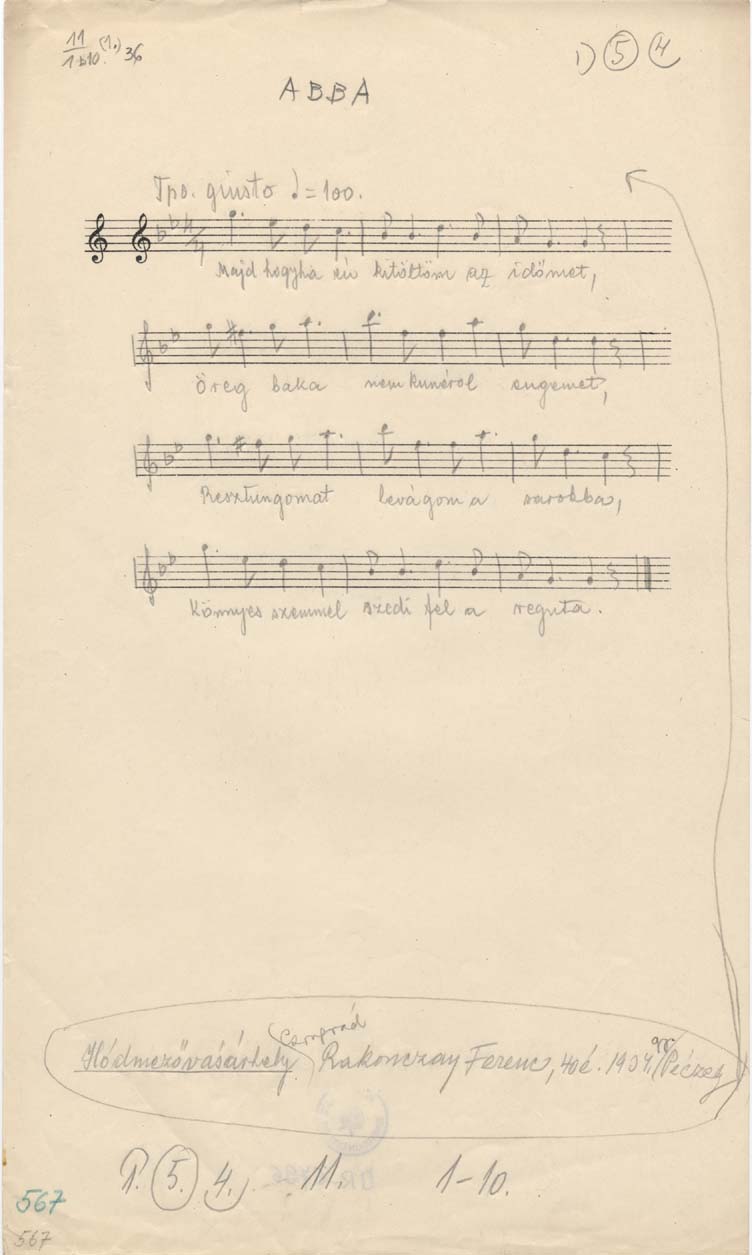 11 (1.) 36
1-b10.
1) 5 4
ABBA
Tpo. giusto ♩=100.
Majd hogyha én kitöltöm az időmet,
Öreg baka nem kunérol engemet,
Resztungomat levágom a sarokba,
Könnyes szemmel szedi fel a reguta.
Csongrád
Hódmezővásárhely Rakonczay Ferenc, 40é. 1934. Péczely
I. 5. 4. 11. 1-10.
567
567